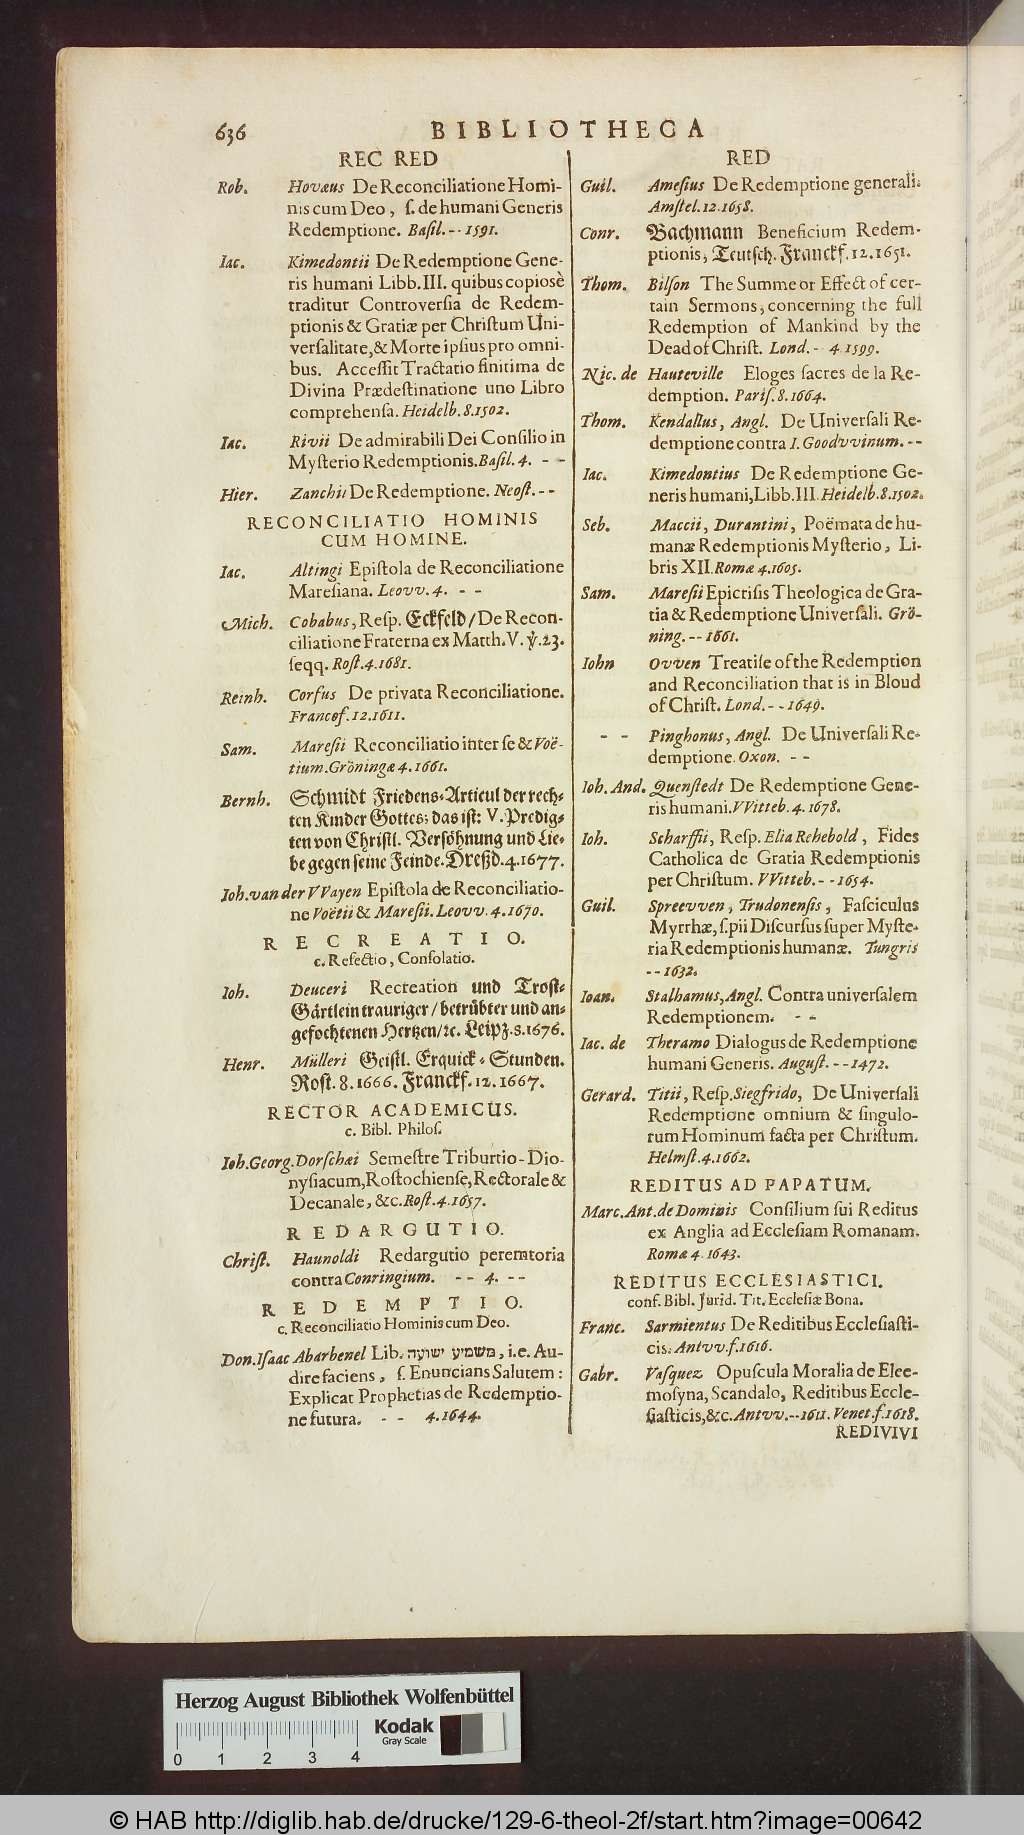 636 BIBLIOTHECA
REC RED
Rob. Hovæus De Reconciliatione Homi-
nis cum Deo, ſ. de humani Generis
Redemptione. Baſil. - - 1591.
Iac. Kimedontii De Redemptione Gene-
ris humani Libb. III. quibus copiosè
traditur Controverſia de Redem-
ptionis & Gratiæ per Chriſtum Uni-
verſalitate, & Morte ipſius pro omni-
bus. Acceſſit Tractatio finitima de
Divina Prædeſtinatione uno Libro
comprehenſa. Heidelb. 8. 1502.
Iac. Rivii De admirabili Dei Conſilio in
Myſterio Redemptionis. Baſil. 4. - -
Hier. Zanchii De Redemptione. Neoſt. - -
RECONCILIATIO HOMINIS
CUM HOMINE.
Iac. Altingi Epiſtola de Reconciliatione
Mareſiana. Leovv. 4. - -
Mich. Cobabus, Reſp. Eckfeld / De Recon-
ciliatione Fraterna ex Matth. V. ℣. 23.
ſeqq. Roſt. 4. 1681.
Reinh. Corfus De privata Reconciliatione.
Francof. 12. 1611.
Sam. Mareſii Reconciliatio inter ſe & Voë-
tium. Gröningæ 4. 1661.
Bernh. Schmidt Friedens-Articul der rech-
ten Kinder Gottes; das iſt: V. Predig-
ten von Chriſtl. Verſöhnung und Lie-
be gegen ſeine Feinde. Dreßd. 4. 1677.
Ioh. van der VVayen Epiſtola de Reconciliatio-
ne Voëtii & Mareſii. Leovv. 4. 1670.
RECREATIO.
c. Refectio, Conſolatio.
Ioh. Deuceri Recreation und Troſt-
Gärtlein trauriger / betrübter und an-
gefochtenen Hertzen / ꝛc. Leipz. 8. 1676.
Henr. Mülleri Geiſtl. Erquick-Stunden.
Roſt. 8. 1666. Franckf. 12. 1667.
RECTOR ACADEMICUS.
c. Bibl. Philoſ.
Ioh. Georg. Dorſchæi Semeſtre Triburtio-Dio-
nyſiacum, Roſtochienſe, Rectorale &
Decanale, &c. Roſt. 4. 1657.
REDARGUTIO.
Chriſt. Haunoldi Redargutio peremtoria
contra Conringium. - - 4. - -
REDEMPTIO.
c. Reconciliatio Hominis cum Deo.
Don. Iſaac Abarbenel Lib. משמיע ישועה, i.e. Au-
dire faciens, ſ. Enuncians Salutem:
Explicat Prophetias de Redemptio-
ne futura. - - 4. 1644.
RED
Guil. Ameſius De Redemptione generali.
Amſtel. 12. 1658.
Conr. Bachmann Beneficium Redem-
ptionis, Teutſch. Franckf. 12. 1651.
Thom. Bilſon The Summe or Effect of cer-
tain Sermons, concerning the full
Redemption of Mankind by the
Dead of Chriſt. Lond. - 4. 1599.
Nic. de Hauteville Eloges ſacres de la Re-
demption. Pariſ. 8. 1664.
Thom. Kendallus, Angl. De Univerſali Re-
demptione contra I. Goodvvinum. - -
Iac. Kimedontius De Redemptione Ge-
neris humani, Libb. III. Heidelb. 8. 1502.
Seb. Maccii, Durantini, Poëmata de hu-
manæ Redemptionis Myſterio, Li-
bris XII. Romæ 4. 1605.
Sam. Mareſii Epicriſis Theologica de Gra-
tia & Redemptione Univerſali. Grö-
ning. - - 1661.
Iohn Ovven Treatiſe of the Redemption
and Reconciliation that is in Bloud
of Chriſt. Lond. - - 1649.
- - Pinghonus, Angl. De Univerſali Re-
demptione. Oxon. - -
Ioh. And. Quenſtedt De Redemptione Gene-
ris humani. VVitteb. 4. 1678.
Ioh. Scharffii, Reſp. Elia Rehebold, Fides
Catholica de Gratia Redemptionis
per Chriſtum. VVitteb. - - 1654.
Guil. Spreevven, Trudonenſis, Faſciculus
Myrrhæ, ſ. pii Diſcurſus ſuper Myſte-
ria Redemptionis humanæ. Tungris
- - 1632.
Ioan. Stalhamus, Angl. Contra univerſalem
Redemptionem. - -
Iac. de Theramo Dialogus de Redemptione
humani Generis. Auguſt. - - 1472.
Gerard. Titii, Reſp. Siegfrido, De Univerſali
Redemptione omnium & ſingulo-
rum Hominum facta per Chriſtum.
Helmſt. 4. 1662.
REDITUS AD PAPATUM.
Marc. Ant. de Dominis Conſilium ſui Reditus
ex Anglia ad Eccleſiam Romanam.
Romæ 4. 1643.
REDITUS ECCLESIASTICI.
conf. Bibl. Jurid. Tit. Eccleſiæ Bona.
Franc. Sarmientus De Reditibus Eccleſiaſti-
cis. Antvv. f. 1616.
Gabr. Vaſquez Opuſcula Moralia de Elee-
moſyna, Scandalo, Reditibus Eccle-
ſiaſticis, &c. Antvv. - - 1611. Venet. f. 1618.
REDIVIVI
Herzog August Bibliothek Wolfenbüttel
Kodak
Gray Scale
0 1 2 3 4
© HAB http://diglib.hab.de/drucke/129-6-theol-2f/start.htm?image=00642